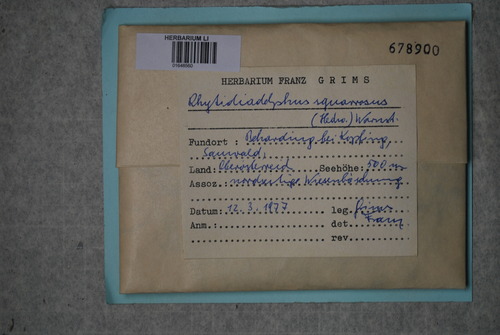 HERBARIUM LI
678900
HERBARIUM FRANZ GRIMS
Rhytidiadelphus squarrosus
(Hedw.) Warnst.
Fundort : bei Kopfing,
Sauwald,
Land: Oberösterreich Seehöhe: 500 m
Assoz.:
Datum: 12. 3. 1977 leg. Grims
Anm.: det. Franz
rev.